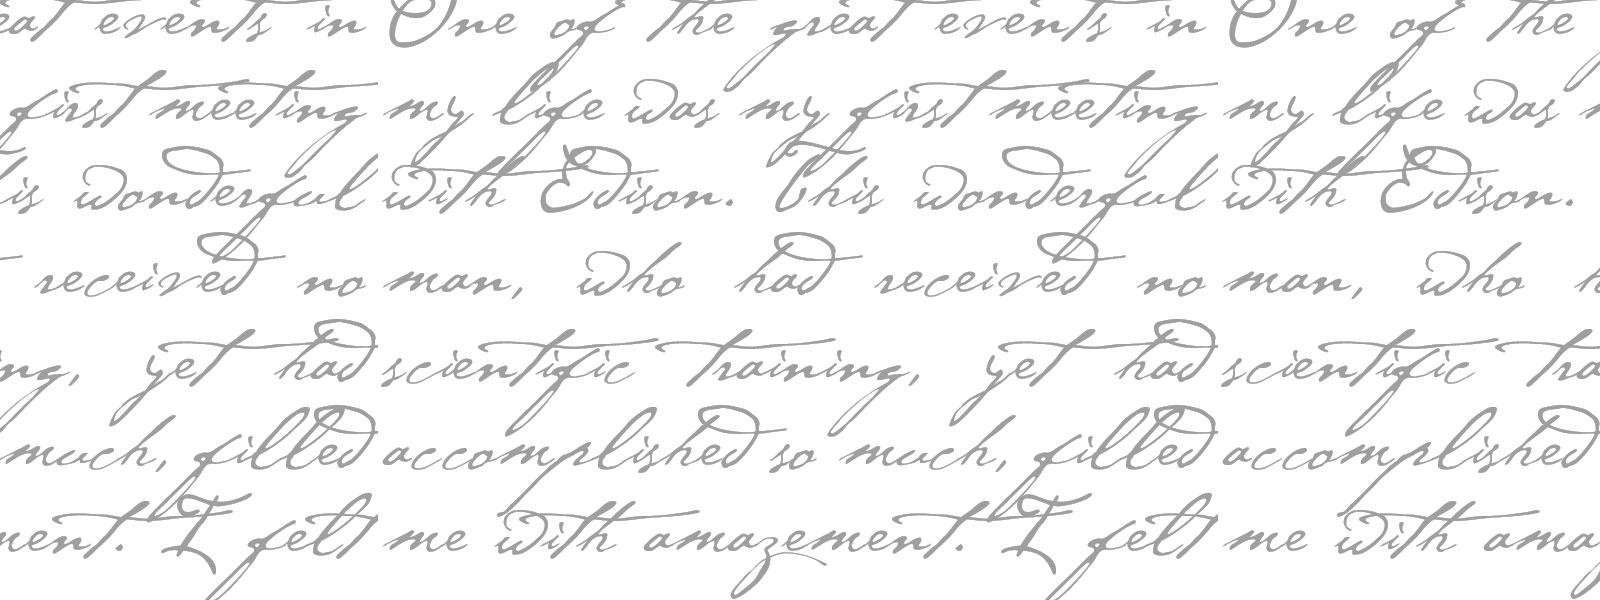 eat events in One of the great events in One of the
first meeting my life was my first meeting my life was
his wonderful with Edison. This wonderful with Edison.
received no man, who had received no man, who
ing, yet had scientific training, yet had scientific tra
much, filled accomplished so much, filled accomplished
ment. I felt me with amazement. I felt me with ama